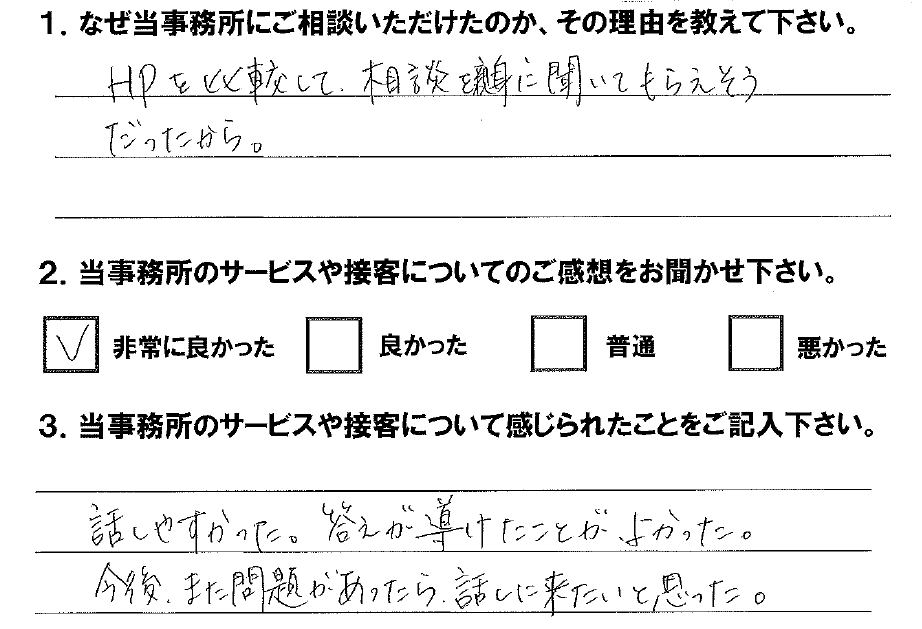 1. なぜ当事務所にご相談いただけたのか、その理由を教えて下さい。
HPを比較して、相談を親身に聞いてもらえそう
だったから。
2. 当事務所のサービスや接客についてのご感想をお聞かせ下さい。
☑ 非常に良かった □ 良かった □ 普通 □ 悪かった
3. 当事務所のサービスや接客について感じられたことをご記入下さい。
話しやすかった。答えが導けたことが、よかった。
今後、また問題があったら、話しに来たいと思った。